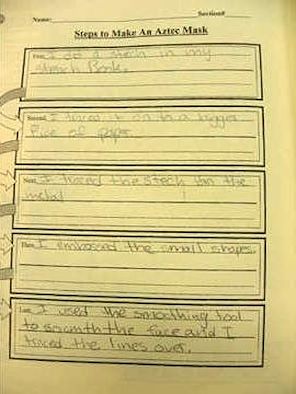 Name: Section#
Steps to Make An Aztec Mask
First I do a stech in my
skech Book.
Second I traced it on to a bigger
Pice of paper.
Next I traced the stech on the
metal
Then I embossed the small shapes.
Last I used the smoothing tool
to smooth the face and I
traced the lines over.